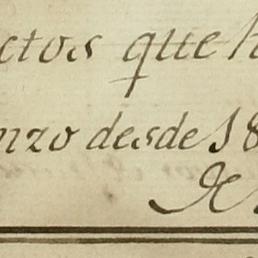 ctos que h
nzo desde 18
de